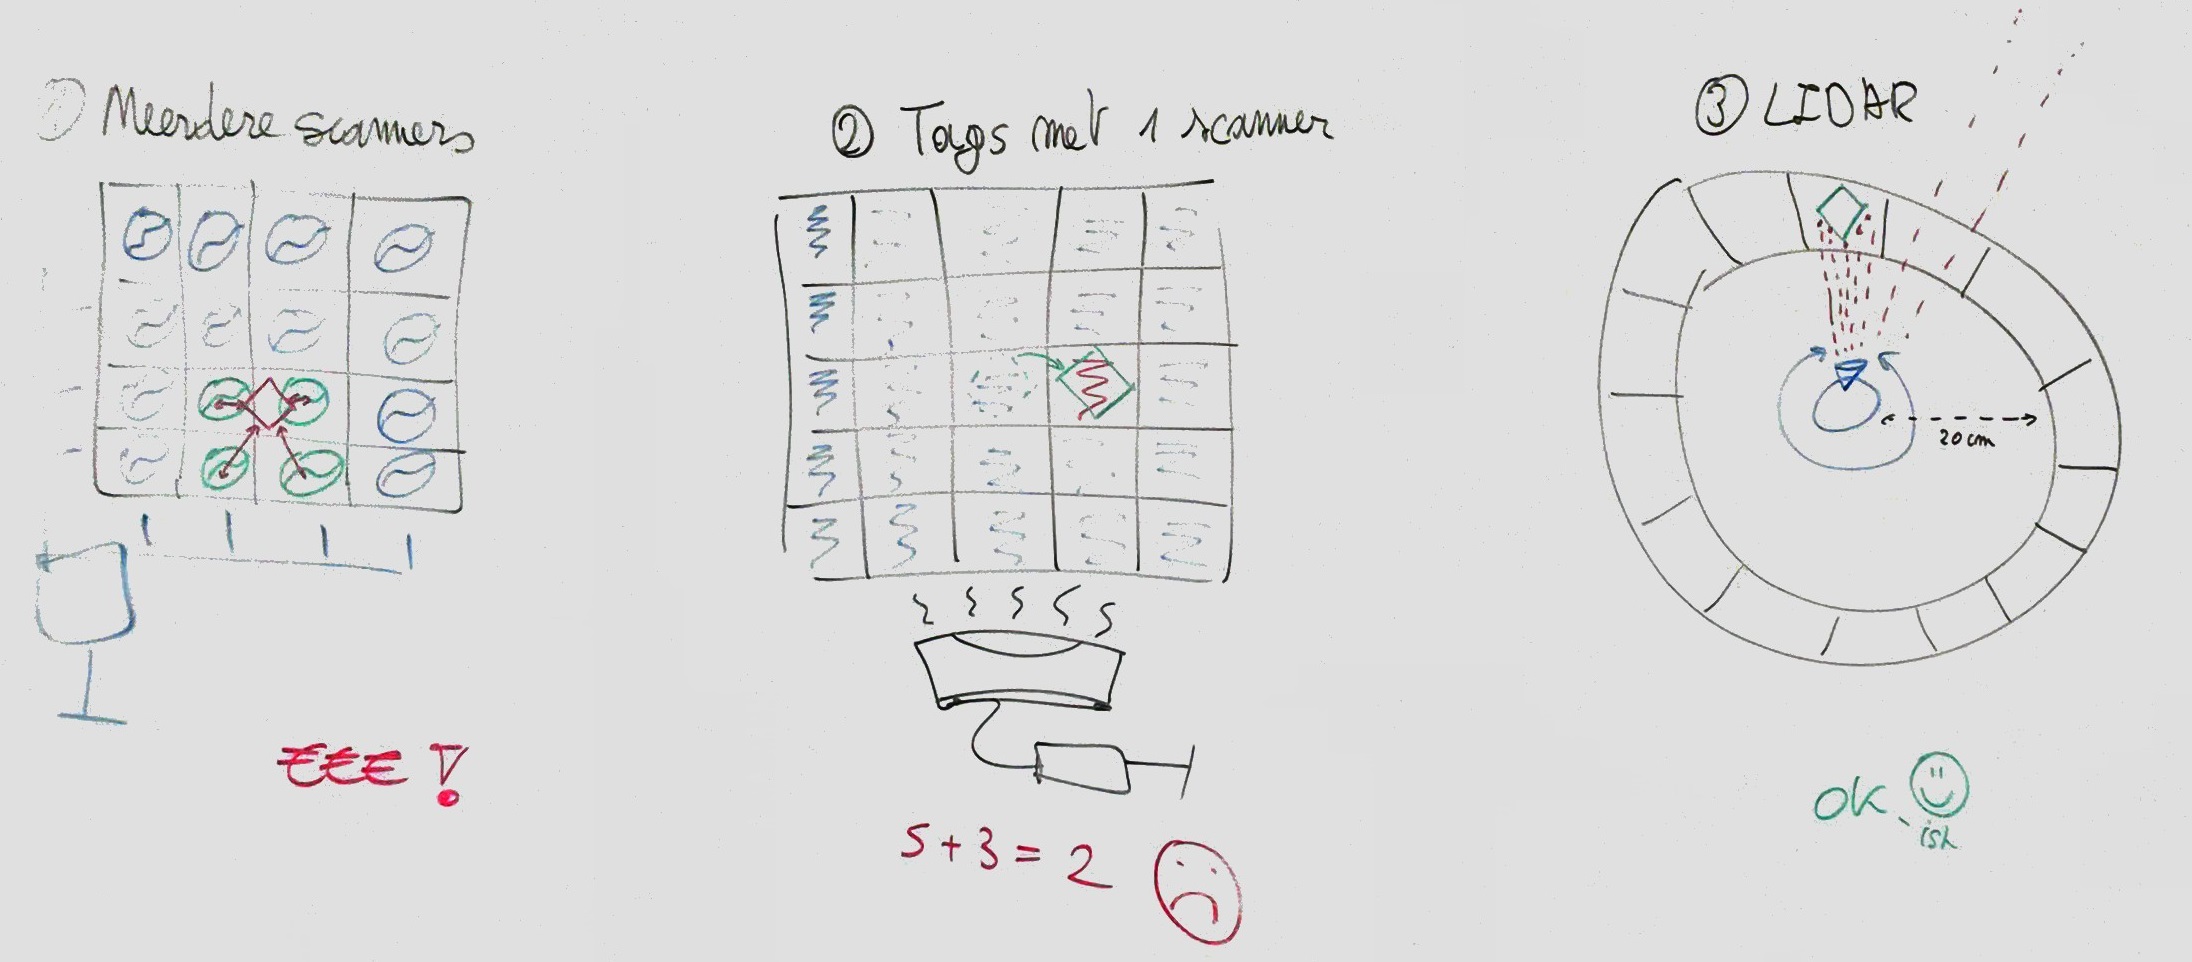 ① Meerdere scanners
② Tags met 1 scanner
③ LIDAR
20 cm
€€€ !
5 + 3 = 2
OK-ish